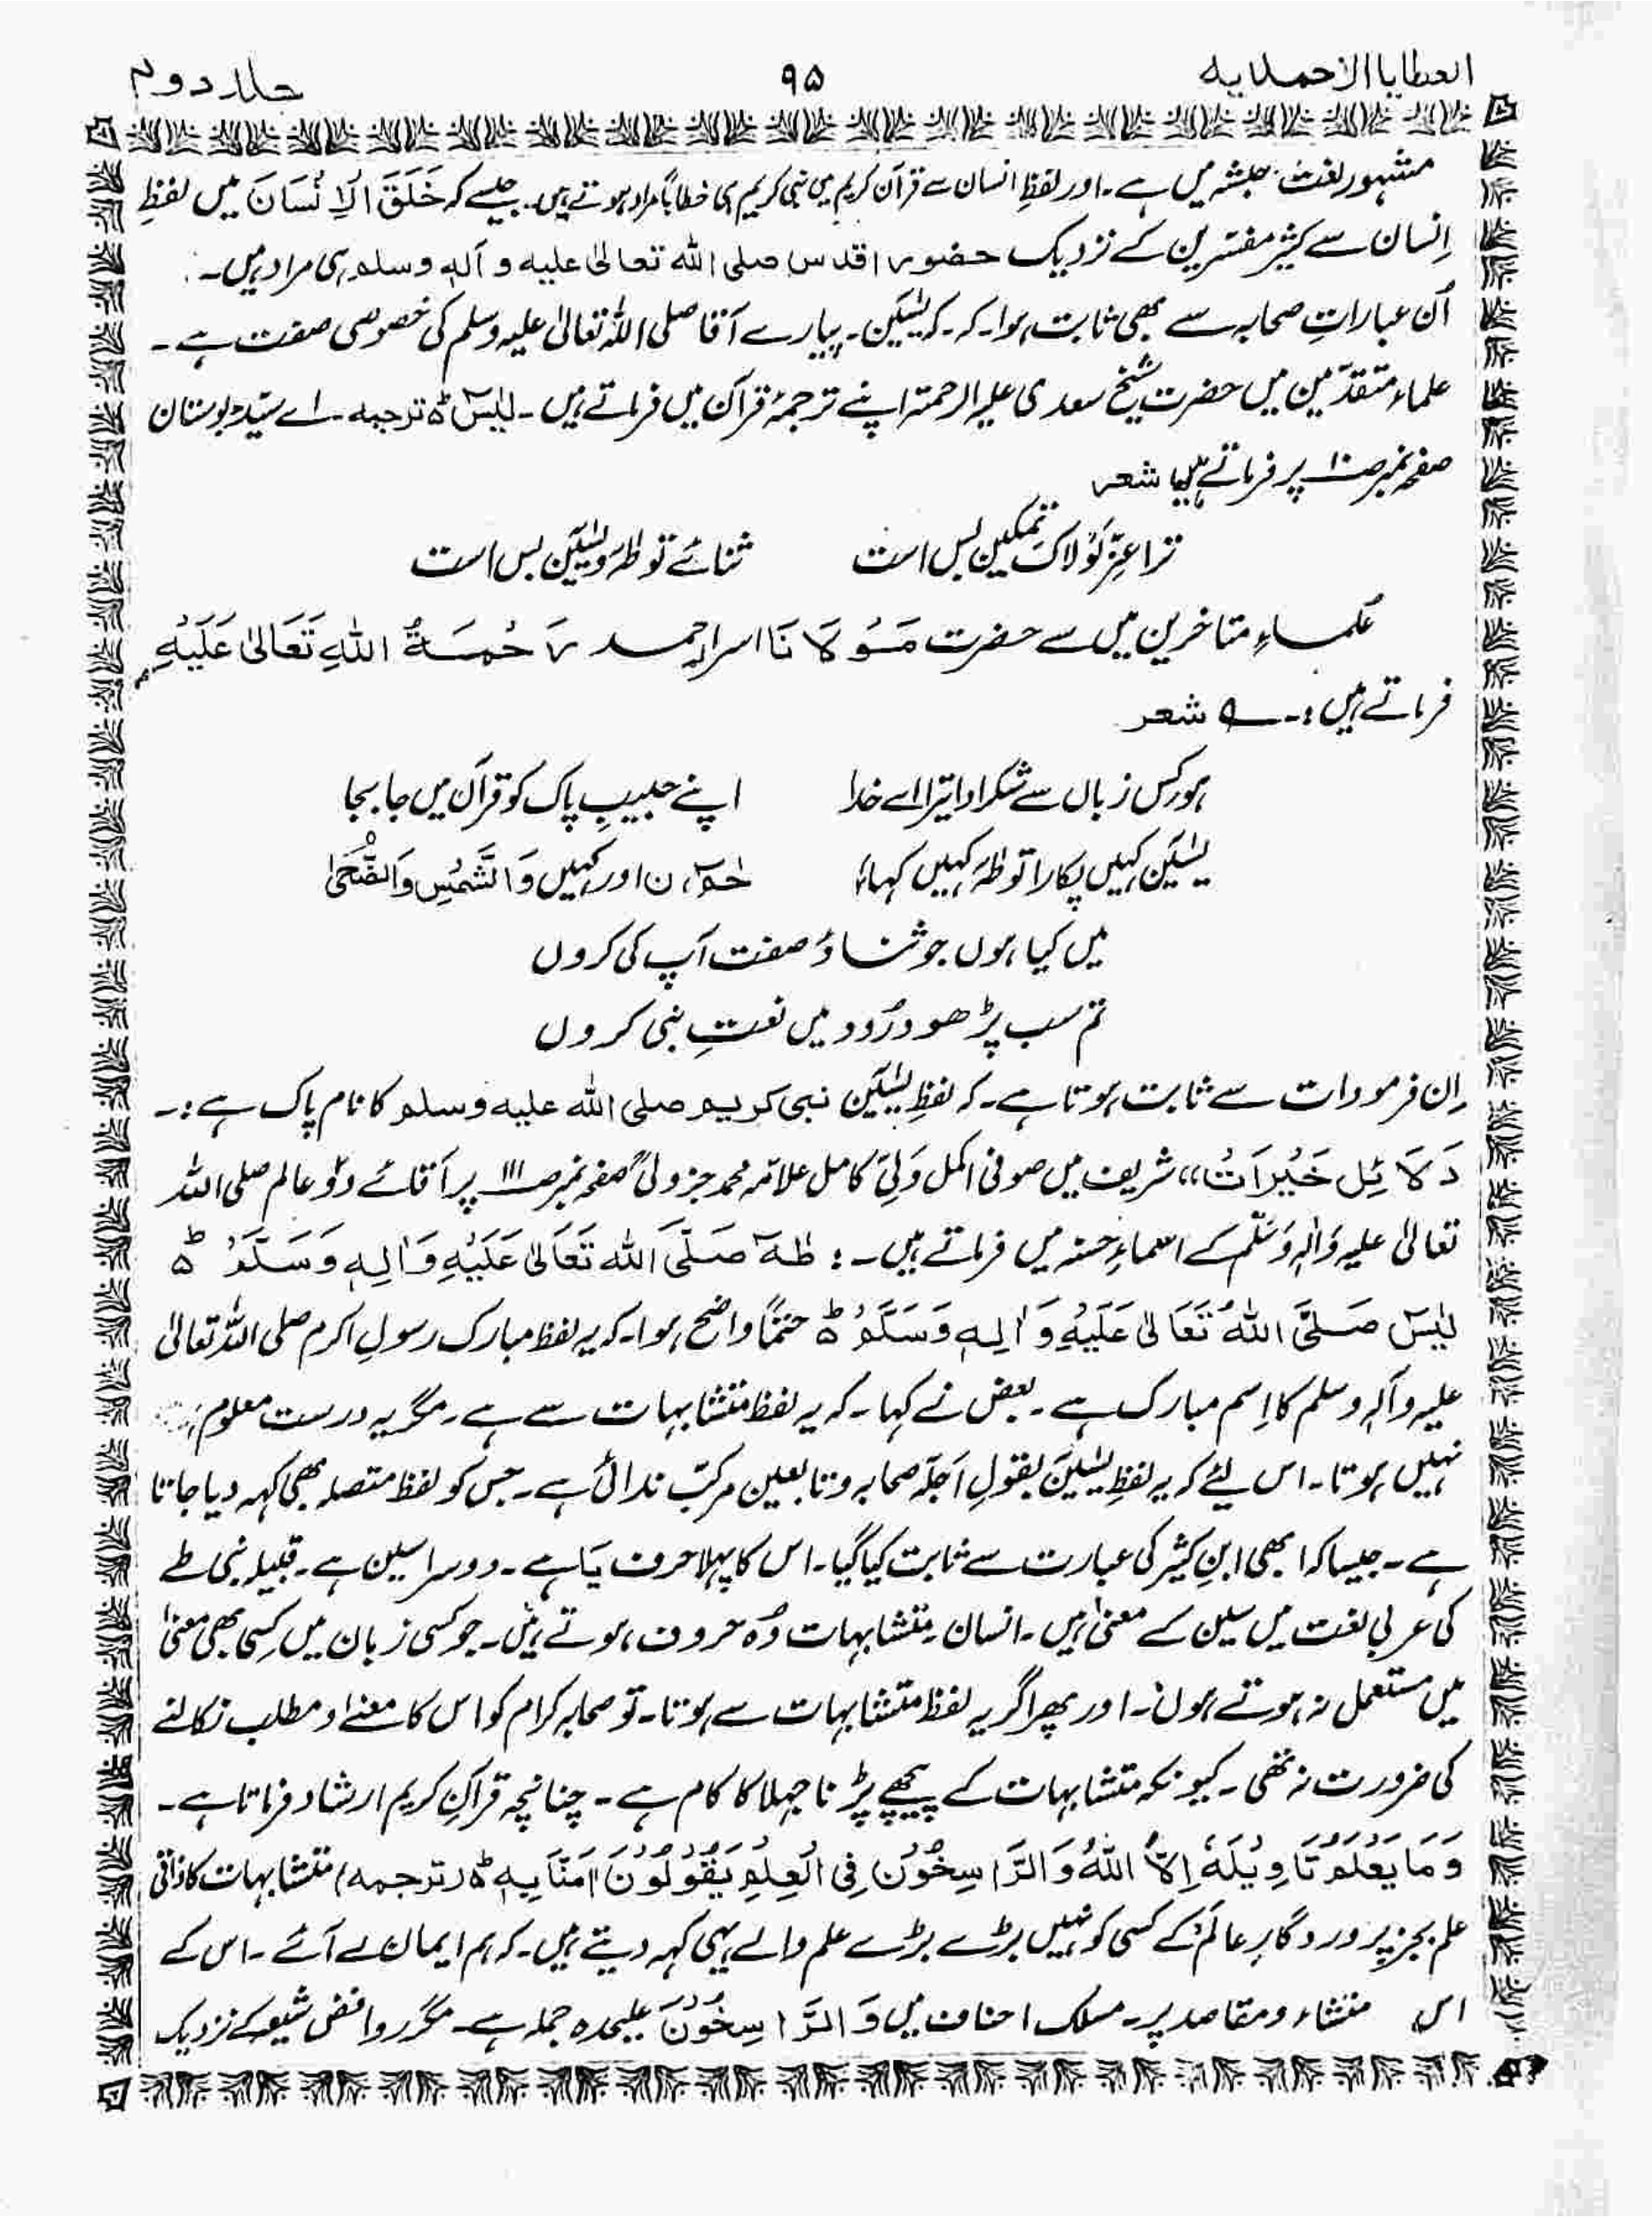 العطایا الاحمدیہ ۹۵ جلد دوم
مشہور لغت حبشہ میں ہے۔ اور لفظِ انسان سے قرآن کریم میں نبی کریم ہی خطاباً مراد ہوتے ہیں۔ جیسے کہ خَلَقَ الْاِنْسَانَ میں لفظِ
اِنسان سے کثیر مفسّرین کے نزدیک حضور اقدس صلی اللہ تعالیٰ علیہ و آلہٖ وسلم ہی مراد ہیں۔
اُن عباراتِ صحابہ سے بھی ثابت ہوا۔ کہ۔ کہ یٰسٓین۔ پیارے آقا صلی اللہ تعالیٰ علیہ وسلم کی خصوصی صفت ہے۔
علماء متقدّمین میں حضرت شیخ سعدی علیہ الرحمۃ اپنے ترجمۂ قرآن میں فرماتے ہیں۔ یٰسٓ ط ترجمہ۔ اے سیّد بوستان
صفحہ نمبر ص۱۰ پر فرماتے ہیں شعر
ترا عِزِّ لَوْلَاکَ تمکین بس است ثنائے تو طٰہٰ و یٰسٓین بس است
عُلماءِ متاخرین میں سے حضرت مَوْلَانَا اسرار احمد رَحْمَۃُ اللہِ تَعَالیٰ عَلَیْہِ
فرماتے ہیں :۔ شعر
ہو کس زباں سے شکر ادا تیرا اے خدا اپنے حبیبِ پاک کو قرآن میں جا بجا
یٰسٓین کہیں پکارا تو طٰہٰ کہیں کہا، حٰمٓ، ن اور کہیں وَالشَّمْسِ وَالضُّحٰی
میں کیا ہوں جو ثناء و صفت آپ کی کروں
تم سب پڑھو درُود میں نعتِ نبی کروں
اِن فرمودات سے ثابت ہوتا ہے۔ کہ لفظِ یٰسٓین نبی کریم صلی اللہ علیہ وسلم کا نام پاک ہے :۔
دَلَائِل خَیْرَاتْ،، شریف میں صوفی اکمل وَلیِٔ کامل علامّہ محمد جزولیؒ صفحہ نمبر ص۱۱۱ پر آقائے دوّ عالم صلی اللہ
تعالیٰ علیہ وَاٰلہٖ وَسَلَّم کے اسماءِ حسنہ میں فرماتے ہیں۔: طٰہٰ صَلَّی اللہ تَعَالیٰ عَلَیْہِ وَاٰلِہٖ وَسَلَّمَ ط
یٰسٓ صَلَّی اللہُ تَعَالیٰ عَلَیْہِ وَ اٰلِہٖ وَسَلَّمَ ط حتمًا واضح ہوا۔ کہ یہ لفظ مبارک رسولِ اکرم صلی اللہ تعالیٰ
علیہ وآلہٖ وسلم کا اِسم مبارک ہے۔ بعض نے کہا۔ کہ یہ لفظ متشابہات سے ہے۔ مگر یہ درست معلوم
نہیں ہوتا۔ اس لیئے کہ یہ لفظِ یٰسٓین بقولِ اَجلّہ صحابہ و تابعین مرکبّ ندائی ہے۔ جس کو لفظ متصلہ بھی کہہ دیا جاتا
ہے۔ جیسا کہ ابھی ابنِ کثیر کی عبارت سے ثابت کیا گیا۔ اس کا پہلا حرف یَا ہے۔ دوسرا سین ہے۔ قبیلہ بنی طے
کی عربی لغت میں سین کے معنیٰ ہیں۔ انسان۔ متشابہات وُہ حروف ہوتے ہیں۔ جو کسی زبان میں کسی بھی معنیٰ
میں مستعمل نہ ہوتے ہوں۔ اور پھر اگر یہ لفظ متشابہات سے ہوتا۔ تو صحابہ کرام کو اس کا معنے او مطلب نکالنے
کی ضرورت نہ تھی۔ کیونکہ متشابہات کے پیچھے پڑنا جہلا کا کام ہے۔ چنانچہ قرآنِ کریم ارشاد فرماتا ہے۔
وَمَا یَعْلَمُ تَاوِیْلَہٗ اِلَّا اللہُ وَالرَّاسِخُوْنَ فِی الْعِلْمِ یَقُوْلُوْنَ اٰمَنَّا بِہٖ ط (ترجمہ) متشابہات کا ذاتی
علم بجز پروردگارِ عالَم کے کسی کو نہیں بڑے بڑے علم والے یہی کہہ دیتے ہیں۔ کہ ہم ایمان لے آئے۔ اس کے
اس منشاء و مقاصد پر۔ مسلک احناف میں وَالرَّاسِخُوْنَ علیحدہ جملہ ہے۔ مگر روافض شیعہ کے نزدیک